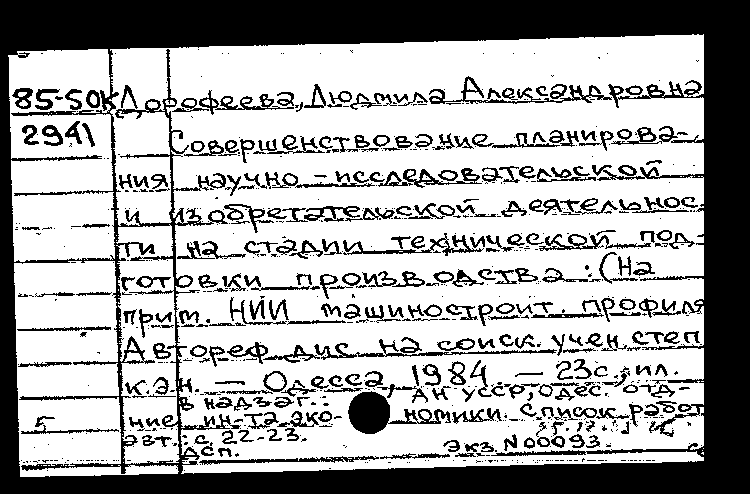 85-50к Дорофеева, Людмила Александровна
2941 Совершенствование планирова-
ния научно-исследовательской
и изобретательской деятельнос-
ти на стадии технической под-
готовки производства: (На
прим. НИИ машиностроит. профиля
Автореф. дис. на соиск. учен. степ.
к.э.н. — Одесса, 1984 — 23с., ил.
В надзаг.: АН УССР, Одес. отд-
5 ние ин-та эко- номики. Список работ
авт.: с. 22-23.
ДСП. Экз. N00093.